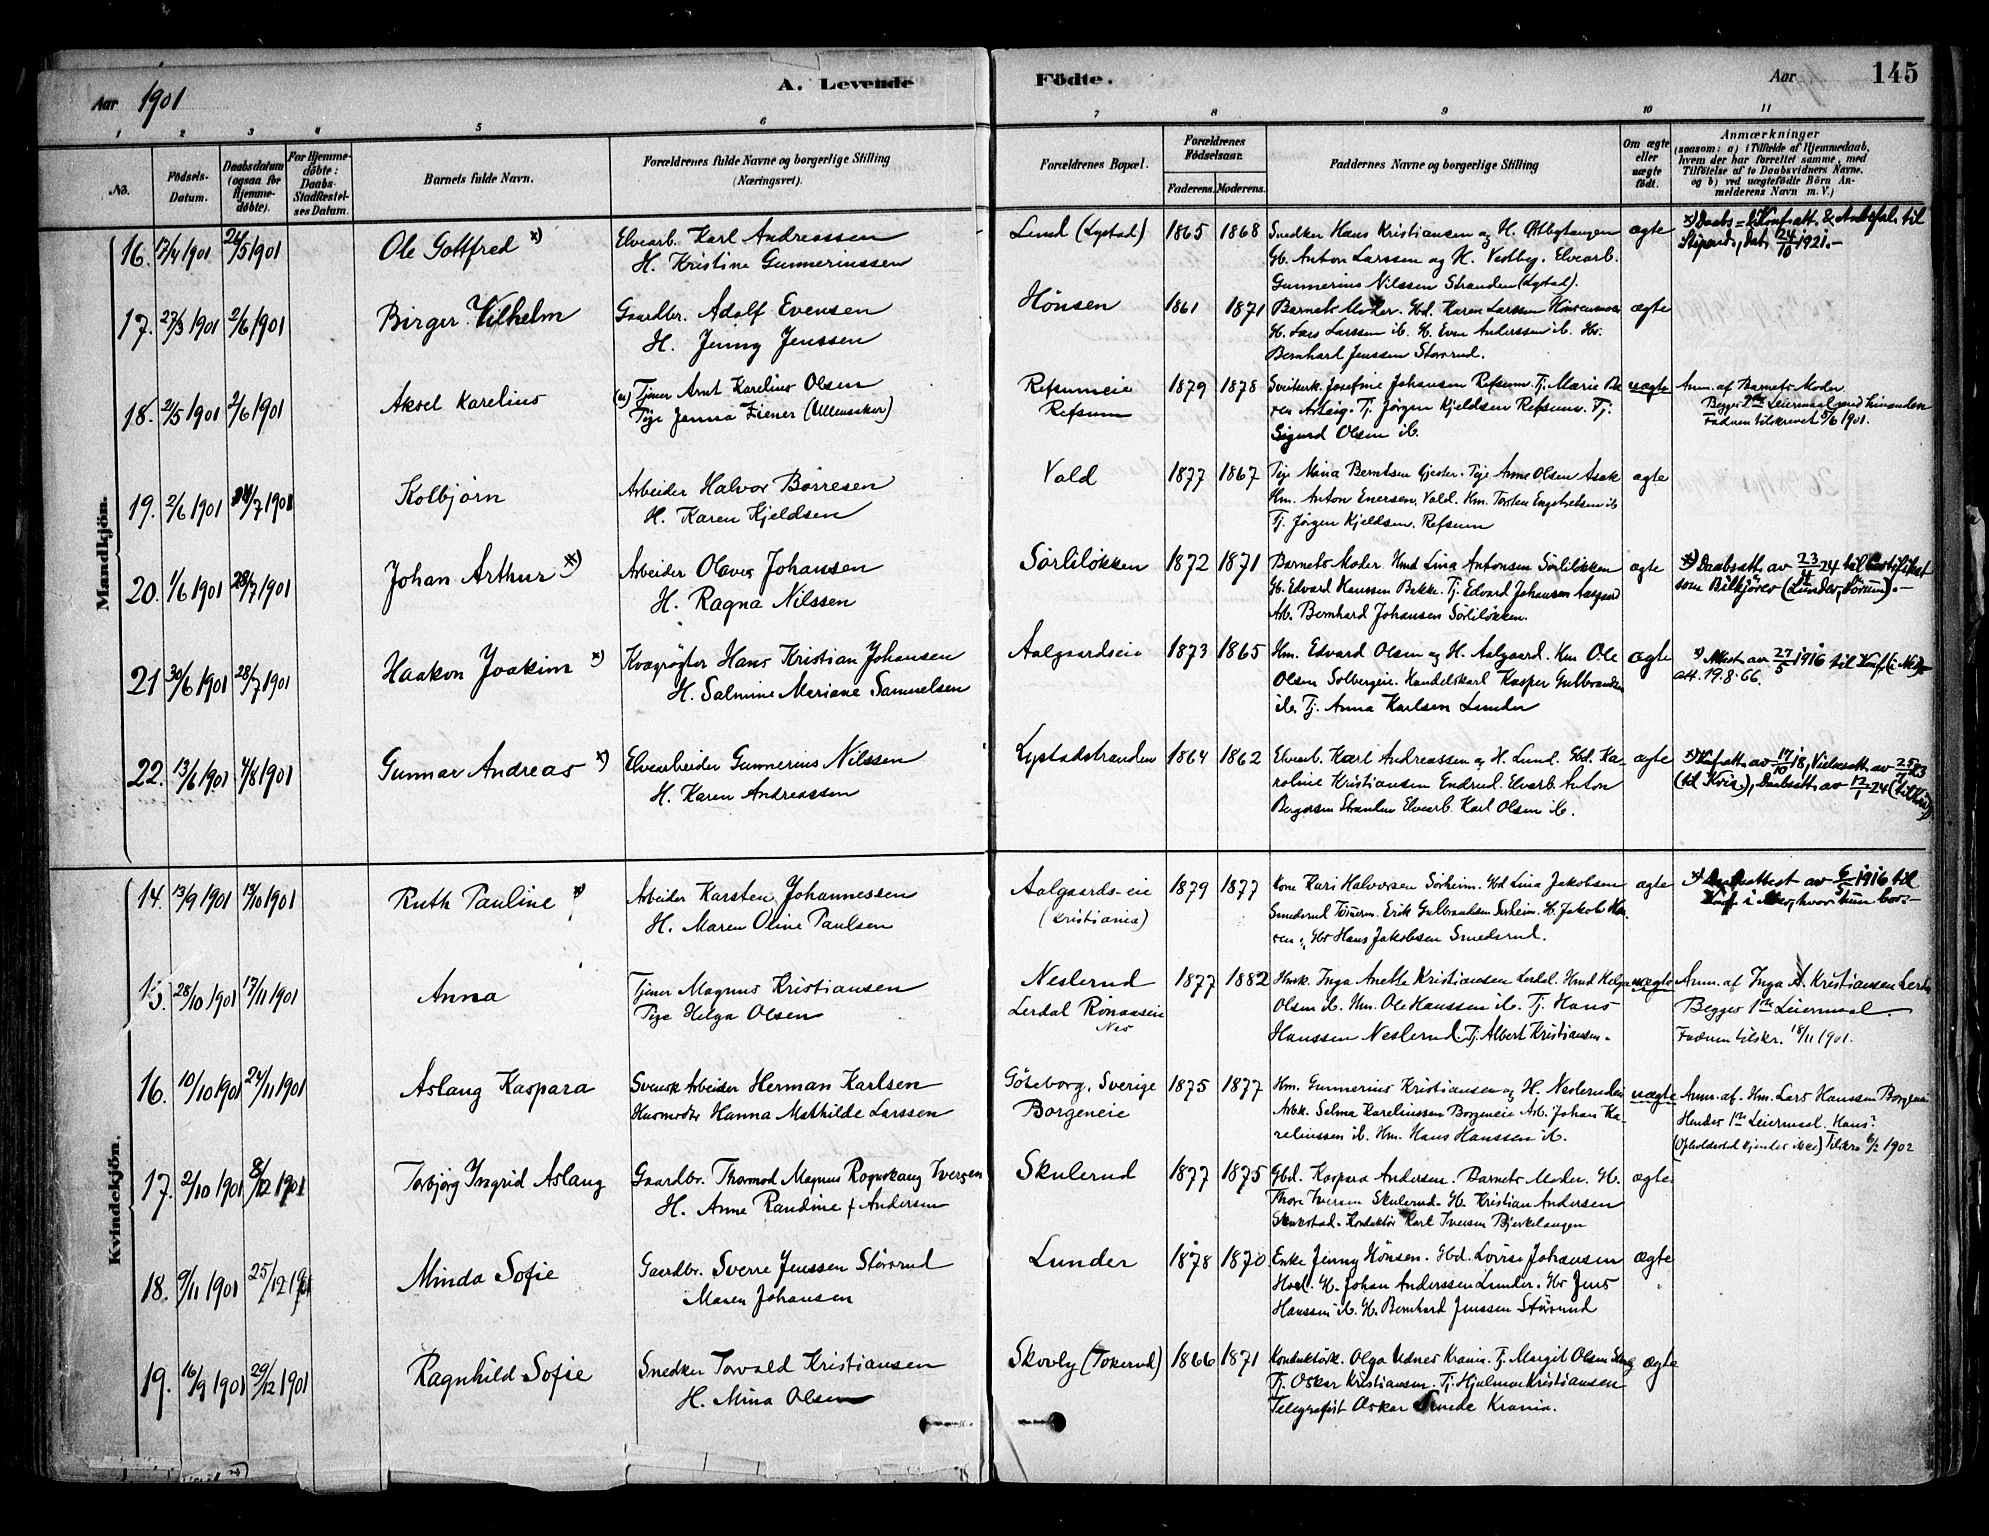 Aar 1901
A. Levende Födte.
Aar
145
1 2 3 4 5 6 7 8 9 10 11
No.
Födsels-Datum.
Daabsdatum (ogsaa for Hjemme-døbte).
For Hjemme-døbte: Daabs-Stadfæstel-ses Datum.
Barnets fulde Navn.
Forældrenes fulde Navne og borgerlige Stilling (Næringsvei).
Forældrenes Bopæl.
Forældrenes Fødselsaar.
Faderens. Moderens.
Faddernes Navne og borgerlige Stilling
Om ægte eller uægte født.
Anmærkninger
(saasom: a) i Tilfælde af Hjemmedaab,
hvem der har forrettet samme, med
Tilføielse af to Daabsvidners Navne,
og b) ved uægtefødte Børn An-
melderens Navn m. V.)
Mandkjön.
16. 17/4 1901 26/5 1901 Ole Gottfred x) Elvearb. Karl Andreassen
H. Kristine Gunneriussen
Lund (Lystad) 1865 1868 Snedker Hans Kristiansen og H. Østbytangen
Gb. Anton Larssen og H. Vestby. Elvearb.
Gunnerius Nilssen Stranden (Lystad).
ægte
til
Stipend, dat. 24/10 1921.-
17. 27/3 1901 2/6 1901 Birger Vilhelm Gaardbr. Adolf Evensen
H. Jenny Jenssen
Hønsen 1861 1871 Barnets Moder. Gbd. Karen Larssen
Gb. Lars Larssen ib. G. Even Anderssen ib. Gbr.
Bernhart Jenssen Størrud.
ægte
18. 2/5 1901 2/6 1901 Aksel Karelius (u) Tjener Arnt Karelius Olsen
Pige Jenna Ziener (Ullensaker)
Refsumeie
Refsum
1879 1878 Sveitserk. Josefine Johansen Refsum. Tj. Marie
Tj. Jørgen Kjeldsen Refsum. Tj.
Sigurd Olsen ib.
uægte
Anm. af Barnets Moder
Begges 2det Leiermaal med hinanden
Faderen tilskrevet 5/6 1901.
19. 2/6 1901 /7 1901 Kolbjørn Arbeider Halvor Børresen
H. Karen Kjeldsen
Vold 1877 1867 Pige Maria Berntsen Gjester. Pige Anne Olsen Asak
Hm. Anton Enersen, Vald. Hm. Torsten Engebretsen ib
Tj. Jørgen Kjeldsen, Refsum
ægte
20. 1/6 1901 28/7 1901 Johan Arthur x) Arbeider Olaves Johansen
H. Ragna Nilssen
Sørliløkken 1872 1871 Barnets Moder. Hmd Lina Antonsen Sørliløkken
Gb. Edvard Hanssen Bakke. Tj. Edvard Johansen Aasgaard
Arb. Bernhard Johansen Sørliløkken.
ægte
x) Daabsatt. av 23/4 24 til Certifikat
som Bilkjører (Lunder, Sørum).-
21 30/6 1901 28/7 1901 Haakon Joakim x) Kvægrøgter Hans Kristian Johansen
H. Salmine Mariane Samuelsen
Aalgaardseie 1873 1865 Hm. Edvard Olsen og H. Aalgaard. Hm Ole
Olsen Solbergeie. Handelskarl Kasper Gulbrandsen
ib. Tj. Anna Karlsen Lunder
ægte
x) Attest av 27/5 1916 til Konf. i Nes.
att. 19.8.66.
22. 13/6 1901 4/8 1901 Gunnar Andreas x) Elvearbeider Gunnerius Nilssen
H. Karen Andreassen
Lystadstranden 1864 1862 Elvearb. Karl Andreassen og H. Lund. Gbd. Ka-
roline Kristiansen Endrud. Elvearb. Anton
Bergersen Stranden Elvearb. Karl Olsen ib.
ægte
x) Konf.att. av 17/10 18, Vielsesatt. av 25/ 23
(til Kria.), Daabsatt. av 12/1 24
Kvindekjön.
14. 13/9 1901 13/10 1901 Ruth Pauline x) Arbeider Karsten Johannessen
H. Maren Oline Paulsen
Aalgaards-eie
(Kristiania)
1879 1877 Kone Kari Halvorsen Sørheim. Gbd Lina Jakobsen
Smedsrud Erik Gulbrandsen Sørheim. G. Jakob
Gbr Hans Jakobsen Smedsrud.
ægte
x) av 6/5 1916 til
Konf. i hvor hun bor.-
15. 28/10 1901 17/11 1901 Anna Tjener Magnus Kristiansen
Pige Helga Olsen
Neslerud
Lerdal Rønaaseie
Nes
1877 1882 Hmk. Inga Anette Kristiansen Lerdal. Hmd Helga
Olsen ib. Hm. Ole Hanssen ib. Tj. Hans
Hanssen Neslerud. Tj. Albert Kristiansen.
uægte
Anm. af Inga A. Kristiansen Lerdal
Begges 1ste Leiermaal
Faderen tilskr. 18/11 1901.
16. 10/10 1901 24/11 1901 Aslaug Kaspara Svensk Arbeider Herman Karlsen
Husmoder Hanna Mathilde Larssen
Göteborg, Sverige
Borgeneie
1875 1877 Hm. Gunnerius Kristiansen og H. Neslerudeie
Arbk. Selma Kareliussen Borgeneie Arb. Johan Ka-
reliussen ib. Hm. Hans Hanssen ib.
uægte
Anm. af. Hm. Lars Hanssen Borgeneie
Hendes 1ste Leiermaal. Hans?
(Opholdssted kjendes ikke) Tilskr. 6/2 1902
17. 2/10 1901 8/12 1901 Torbjørg Ingrid Aslaug Gaardbr. Thormod Magnus Rognskaug Iversen
H. Anne Randine f. Andersen
Skulerud 1877 1875 Gbd. Kaspara Andersen. Barnets Moder. G.
Thore Iversen Skulerud. G. Kristian Andersen
Konduktør Karl Iversen Bjørkelangen
ægte
18. 9/11 1901 25/12 1901 Minda Sofie Gaardbr. Sverre Jenssen Størrud
Maren Johansen
Lunder 1878 1870 Enke Jenny Hønsen. Gbd. Lovise Johansen
Hoel. G. Johan Anderssen Lunder. Gbr Jens
Hanssen ib. G. Bernhard Jenssen Størrud
ægte
19. 16/9 1901 29/12 1901 Ragnhild Sofie Snedker Torvald Kristiansen
H. Mina Olsen
Skovly (Tokerud) 1866 1871 Konduktørk. Olga Udnes Krania. Tj. Margit Olsen
Tj. Oskar Kristiansen. Tj. Hjalmar Kristiansen
Telegrafist Oskar Smede Krania.
ægte